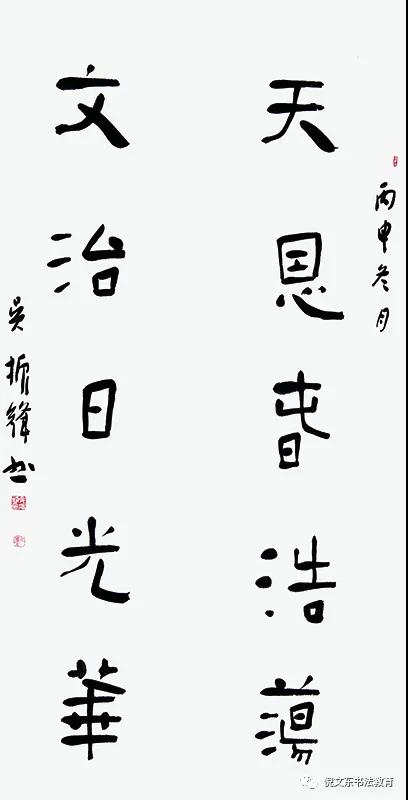 丙申冬月
天恩春浩蕩
文治日光華
吴振鋒书
倪文东书法教育